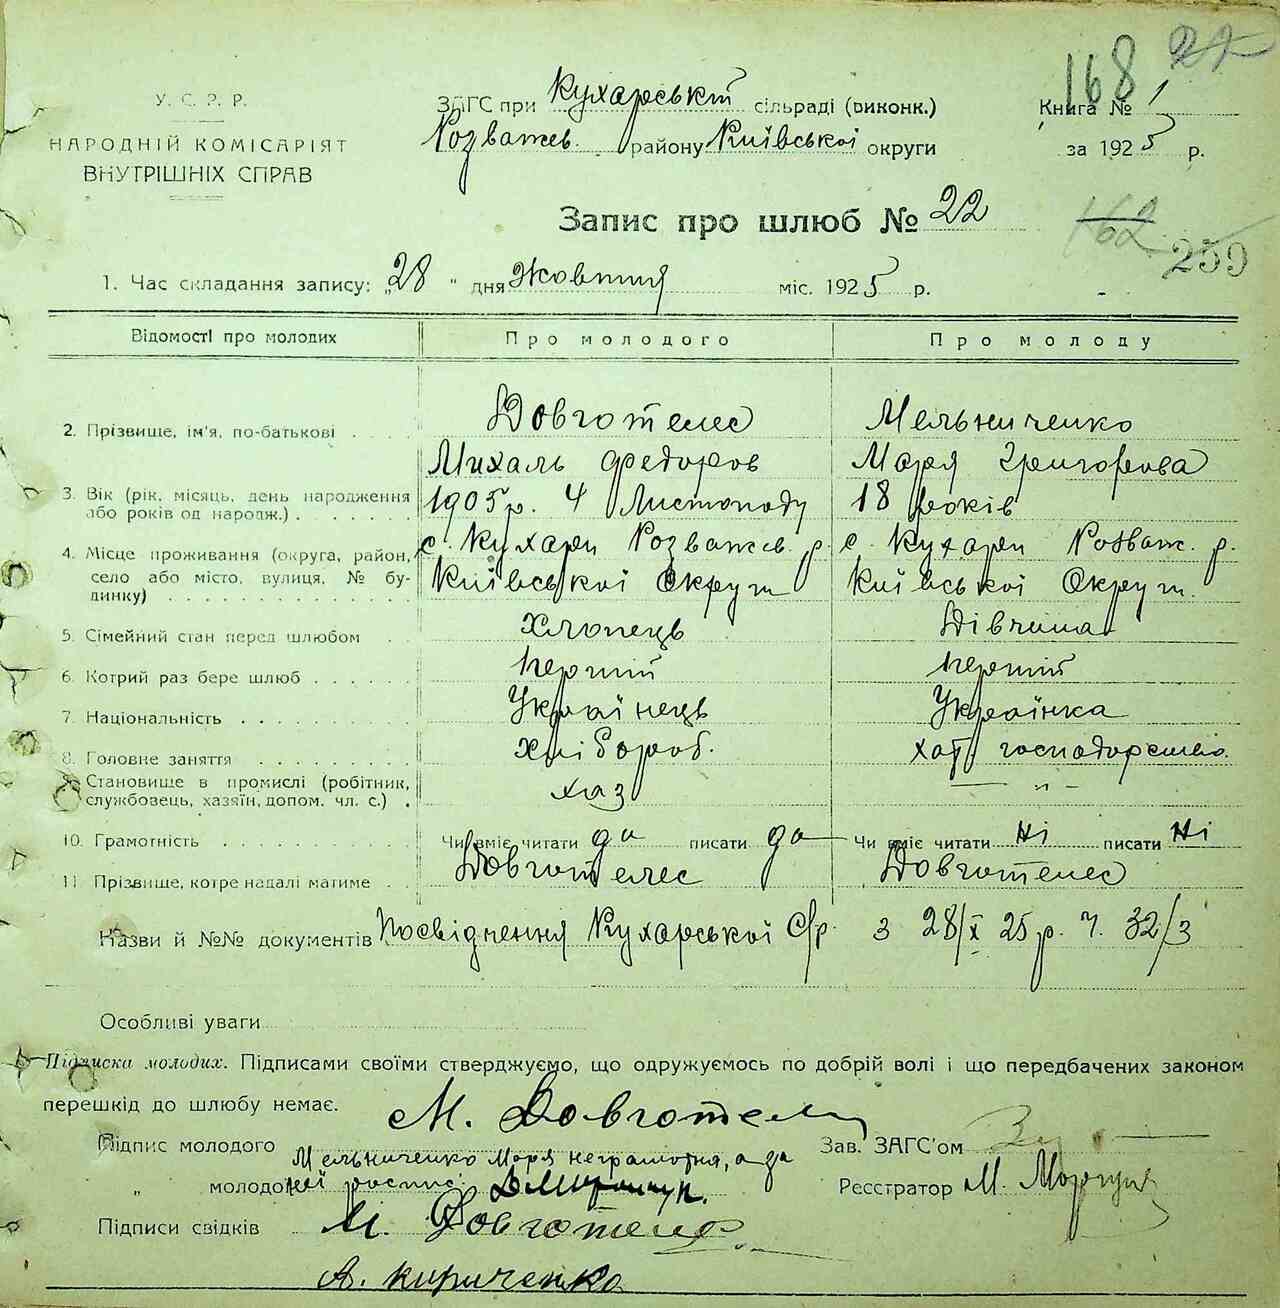 168 22
У. С. Р. Р.
НАРОДНІЙ КОМІСАРІЯТ
ВНУТРІШНІХ СПРАВ
ЗАГС при Кухарській сільраді (виконк.)
Розважев. району Київської округи
Книга № 1
за 1925 р.
Запис про шлюб № 22
162 259
1. Час складання запису: „28" дня Жовтня міс. 1925 р.
Відомості про молодих Про молодого Про молоду
2. Прізвище, ім'я, по-батькові . . . . Довготелес Мельниченко
Михаль Федоров Маря Григорова
3. Вік (рік, місяць, день народження або років од народж.) . . . . . . 1905 р. 4 Листопаду 18 років
4. Місце проживання (округа, район, село або місто, вулиця, № будинку) . . . . . . с. Кухари Розважев. р. Київської Округи с. Кухари Розваж. р. Київської Округи
5. Сімейний стан перед шлюбом . Хлопець Дівчина
6. Котрий раз бере шлюб . . . . . перший перший
7. Національність . . . . . . . . . Українець Українка
8. Головне заняття . . . . . . . . Хлібороб. хат господарство.
9. Становище в промислі (робітник, службовець, хазяїн, допом. чл. с.) . хаз — " —
10. Грамотність . . . . . . . . . . Чи вміє читати да писати да Чи вміє читати ні писати ні
11. Прізвище, котре надалі матиме . . Довготелес Довготелес
Назви й №№ документів Посвідчення Кухарської С/р. з 28/X 25 р. ч. 32/3
Особливі уваги
Підписка молодих. Підписами своїми стверджуємо, що одружуємось по добрій волі і що передбачених законом
перешкід до шлюбу немає.
Підпис молодого М. Довготелес
Зав. ЗАГС'ом
Мельниченко Маря неграмотня, а за
„ молодої неї роспис.
Реєстратор М.
Підписи свідків М. Довготелес
А. Кириченко